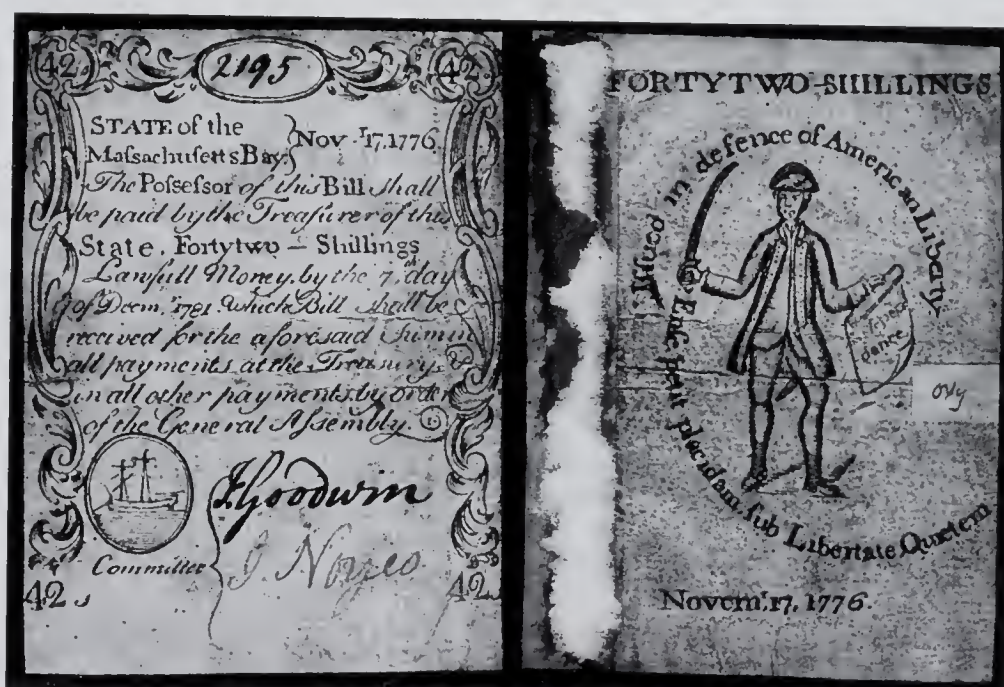 42. 2195 42.
STATE of the
Maſsachuſetts Bay. } Nov.r 17, 1776
The Poſseſsor of this Bill ſhall
be paid by the Treaſurer of this
State, Fortytwo – Shillings
Lawfull Money, by the 7.th day
of Decm.r 1781 which Bill ſhall be
received for the aforeſaid ſum in
all payments at the Treaſury, &
in all other payments by order
of the General Aſsembly.
J Goodwin
Committee
J. Noyes
42s 42s
FORTYTWO-SHILLINGS
Iſſued in defence of American Liberty
Enſe petit placidam ſub Libertate Quietem
Indepen
dance
Novem.r 17, 1776.